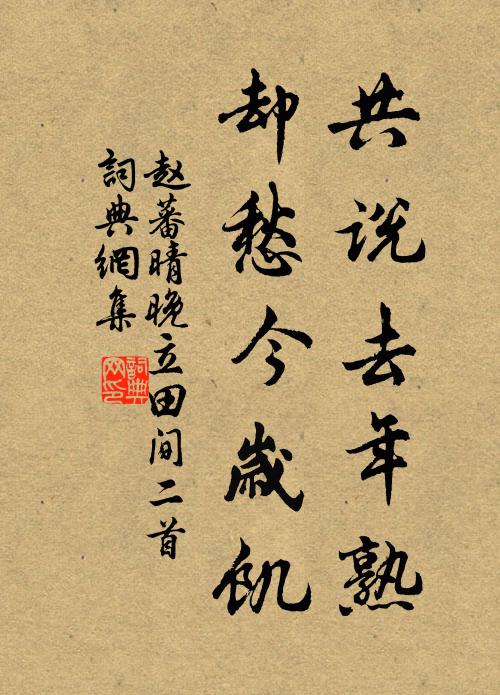 共说去年熟
却愁今岁饥
赵蕃晴晚立田间二首
詞典網集
詞典网印